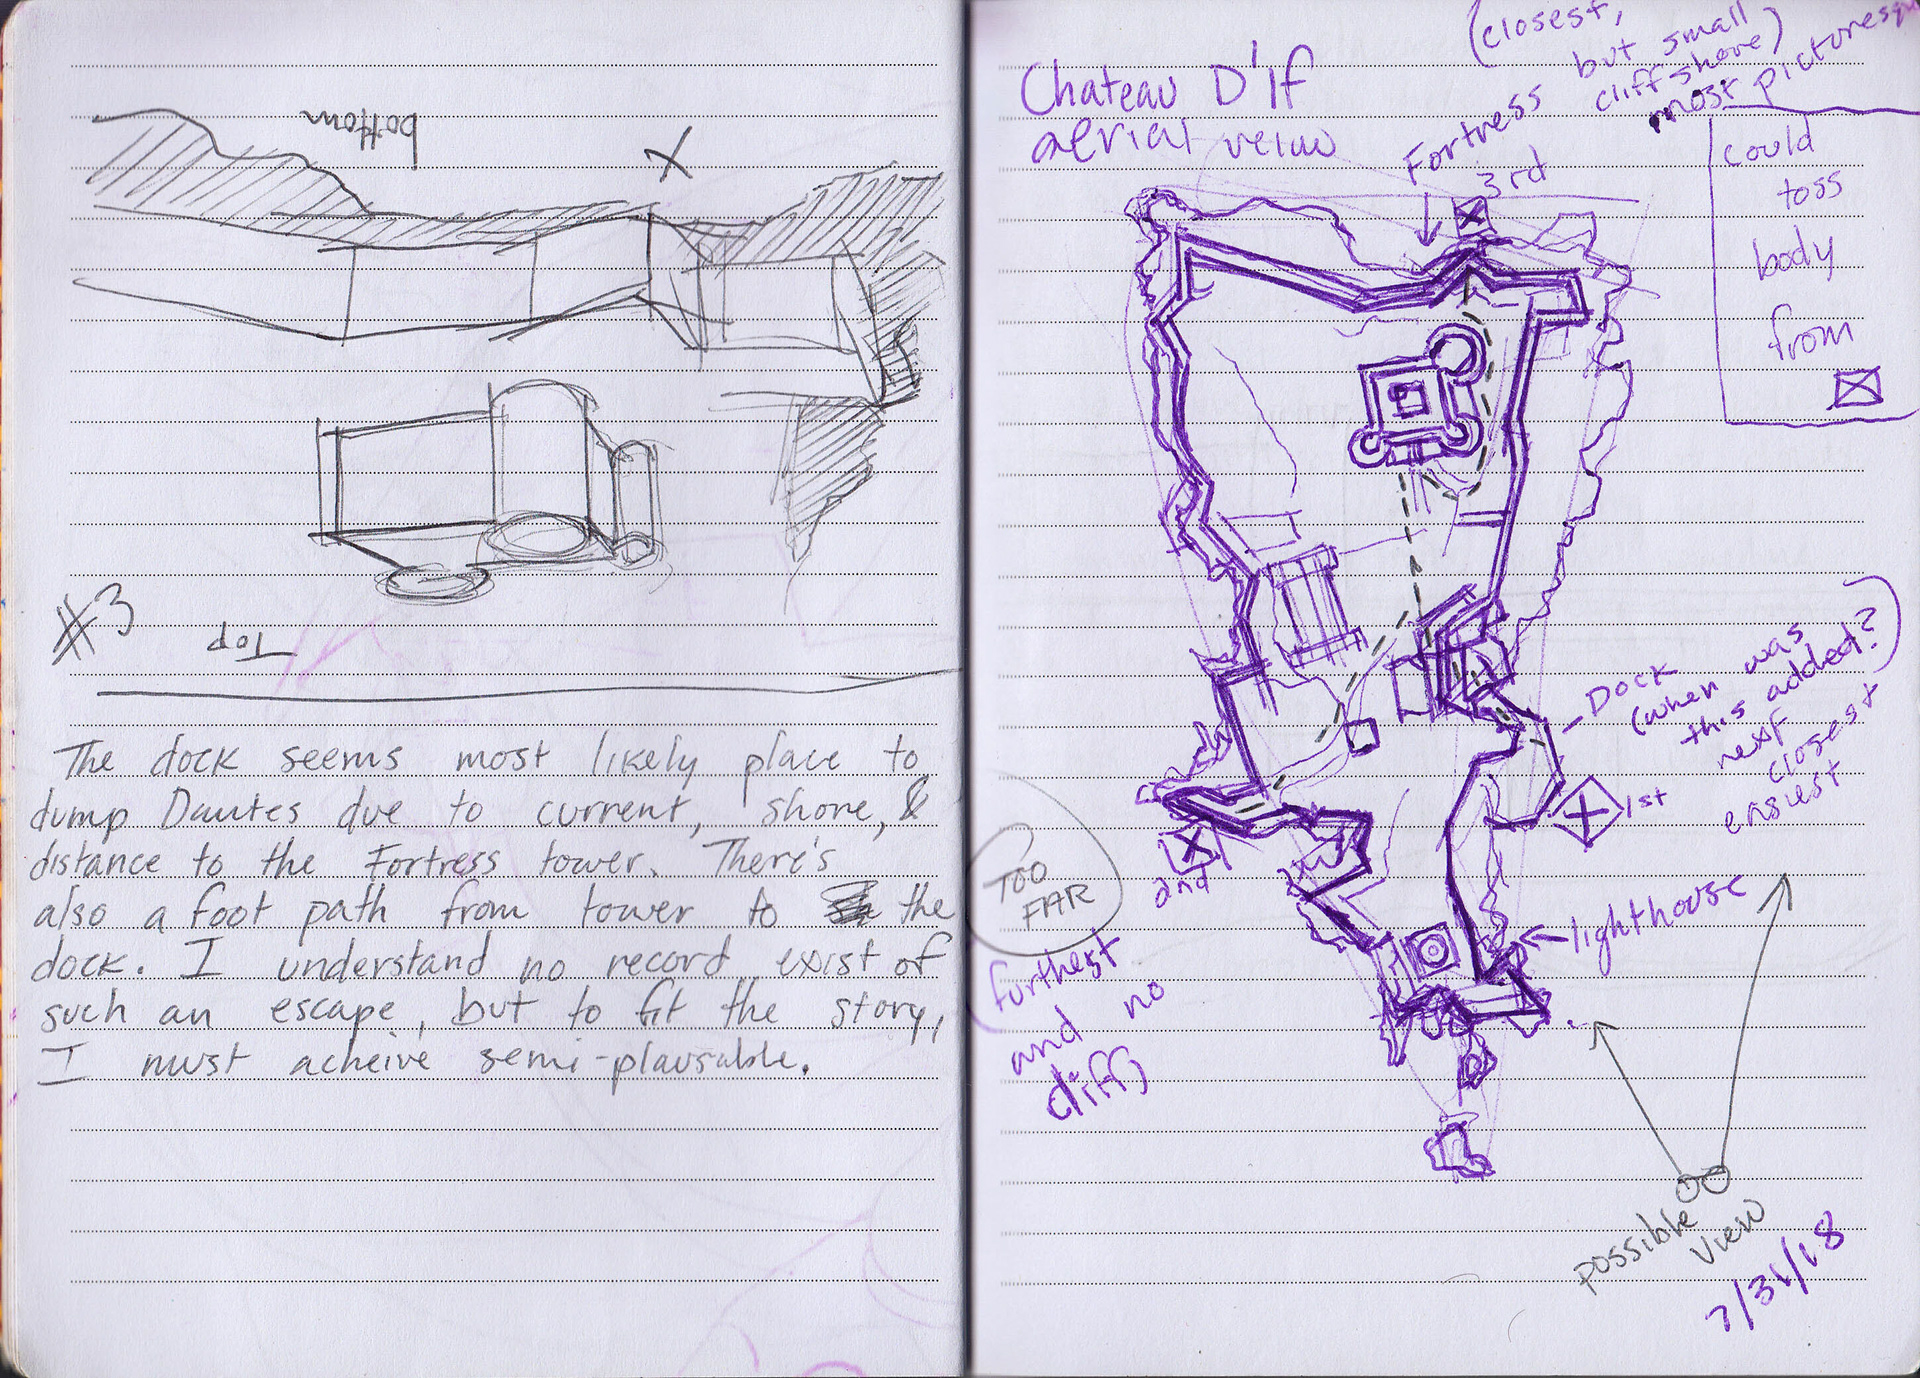 bottom
X
#3
Top
The dock seems most likely place to
dump Dantes due to current, shore, &
distance to the Fortress tower. There's
also a foot path from tower to the
dock. I understand no record exist of
such an escape, but to fit the story,
I must acheive semi-plausable.
Chateau D'If
aerial veiw
(closest,
but small
cliff shore)
most picturesque
Fortress
3rd
could
toss
body
from
Dock
(when was
this added?)
next
closest
easiest
1st
2nd
TOO
FAR
(furthest
and no
cliff)
lighthouse
possible
view
7/31/18